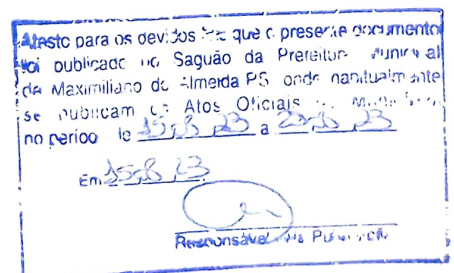 Atesto para os devidos que o presente documento
foi publicado no Saguão da Prefeitura Municipal
de Maximiliano de Almeida RS onde habitualmente
se publicam os Atos Oficiais
no período de 15,8,23 a
Em 15,8,23
Responsável